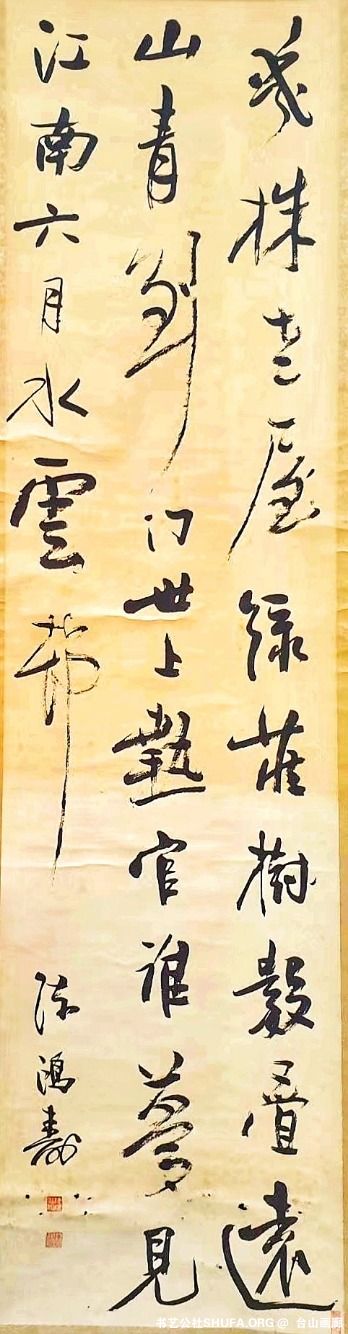 幾株老屋綠樹數疊遠
山青到門世上熱官誰夢見
江南六月水雲邨
陳鴻壽
书艺公社SHUFA.ORG @ 台山画廊